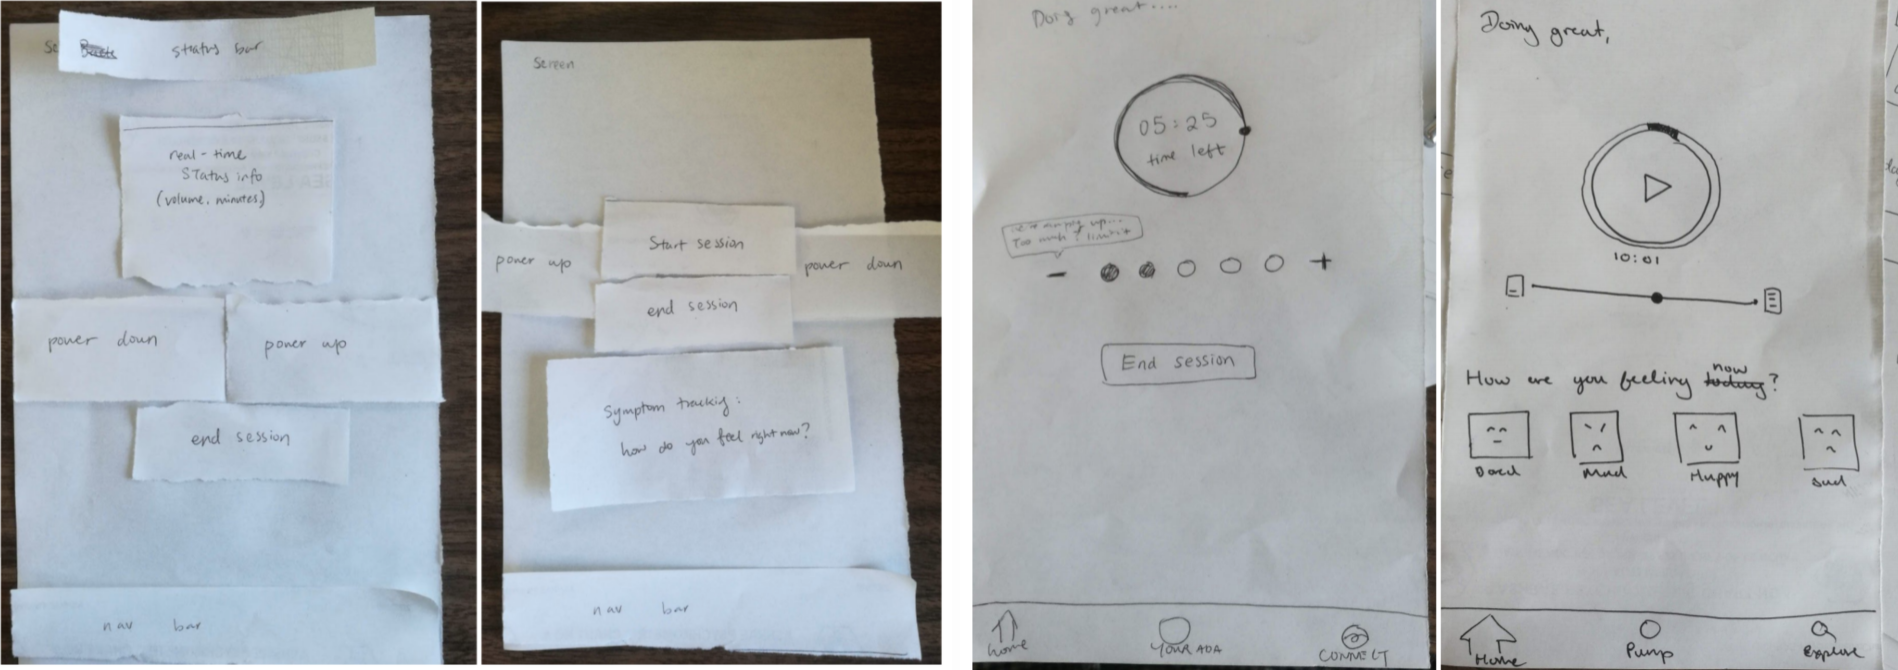 status bar
real-time
Status info
(volume, minutes)
power down
power up
end session
nav bar
Screen
power up
Start session
power down
end session
Symptom tracking:
how do you feel right now?
nav bar
Doing great....
05:25
time left
Too much? limit it
- +
End session
home
YOUR ADA
CONNECT
Doing great,
10:01
How are you feeling now today?
Mad
Happy
Sad
Home
Pump
Explore